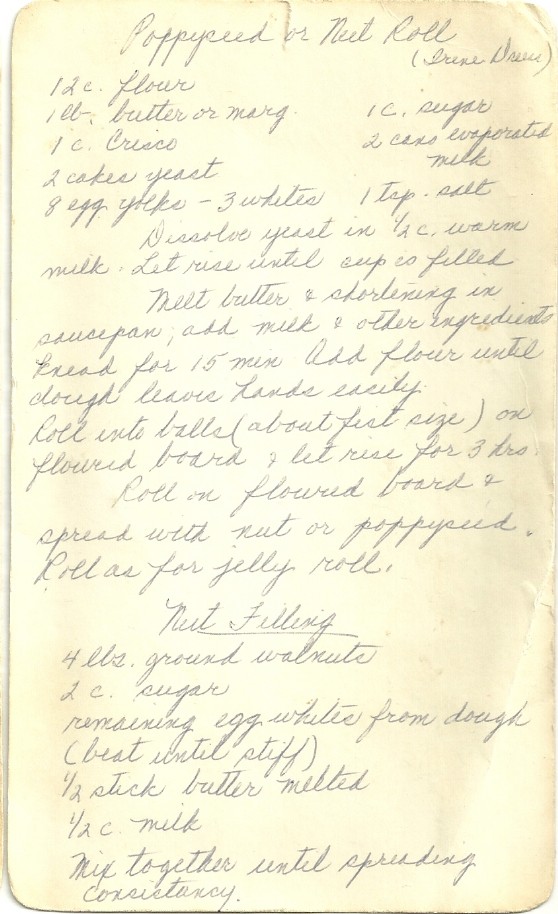 Poppyseed or Nut Roll
(Irene Drew)
12 c. flour
1 lb. butter or marg. 1 c. sugar
1 c. Crisco 2 cans evaporated milk
2 cakes yeast
8 egg yolks - 3 whites 1 tsp. salt
Dissolve yeast in 1/2 c. warm
milk. Let rise until cup is filled
Melt butter & shortening in
saucepan, add milk & other ingredients
knead for 15 min Add flour until
dough leaves hands easily.
Roll into balls (about fist size) on
floured board & let rise for 3 hrs.
Roll on floured board &
spread with nut or poppyseed.
Roll as for jelly roll.
Nut Filling
4 lbs. ground walnuts
2 c. sugar
remaining egg whites from dough
(beat until stiff)
1/2 stick butter melted
1/2 c. milk
Mix together until spreading
consistancy.